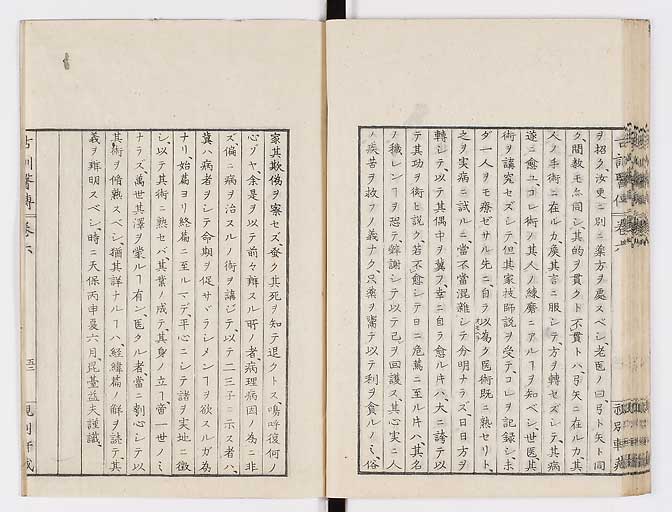 ヲ招ク汝更ニ別ニ薬方ヲ處スベシ老医ノ曰弓ト矢ト同
ク間数モ亦同シ其的ヲ貫クト不貫トハ弓矢ニ在ルカ其
人ノ手術ニ在ルカ廣其言ニ服シテ方ヲ轉セズシテ其病
遂ニ愈ユコレ術ノ其人ノ練磨ニアルヿヲ知ベシ世医其
術ヲ講究セズシテ但其家技師説ヲ受テコレヲ記録シ未
ダ一人ヲモ療ゼサル先ニ自ラ以為ク医術既ニ熟セリト
之ヲ実病ニ試ルニ當不當混雜シテ分明ナラズ日日方ヲ
轉シテ以テ其偶中ヲ冀フ幸ニ自ラ愈ル片ハ大ニ誇テ以
テ其功ヲ術ヒ説ク若不愈シテ日ニ危篤ニ至ル片ハ其名
ノ穢レンヿヲ恐テ辭謝シテ以テ己ヲ回護ス其心実ニ人
ノ疾苦ヲ救フノ義ナク只薬ヲ鬻テ以テ利ヲ貪ルノミ俗
家其欺偽ヲ察セズ蚤ク其死ヲ知テ退クトス嗚呼復何ノ
心ゾヤ余是ヲ以テ前々辨スル所ノ者病理病因ノ為ニ非
ズ偏ニ病ヲ治スルノ術ヲ講ジテ以テ二三子ニ示ス者ハ
冀ハ病者ヲシテ命期ヲ促サヾラシメンヿヲ欲スルガ為
ナリ始篇ヨリ終篇ニ至ルマデ平心ニシテ諸ヲ実址ニ徴
シ以テ其術ニ熟セバ其業ノ成テ其身ノ立ヿ啻一世ノミ
ナラズ萬世其澤ヲ蒙ルヿ有ン医タル者當ニ刻心シテ以
其術ヲ脩熟スベシ猶其詳ナルヿハ經緯篇ノ解ヲ読テ其
義ヲ辨明スベシ時ニ天保丙申夏六月昆臺益夫謹識
古訓醫傳 卷六